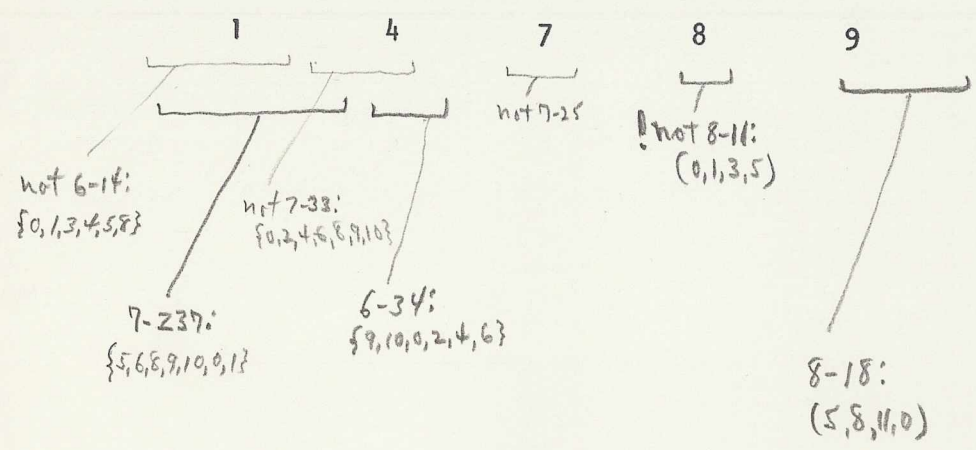 1 4 7 8 9
not 7-25
! not 8-11:
(0,1,3,5)
not 6-14:
{0,1,3,4,5,8}
not 7-33:
{0,2,4,6,8,9,10}
7-Z37:
{5,6,8,9,10,0,1}
6-34:
{9,10,0,2,4,6}
8-18:
(5,8,11,0)